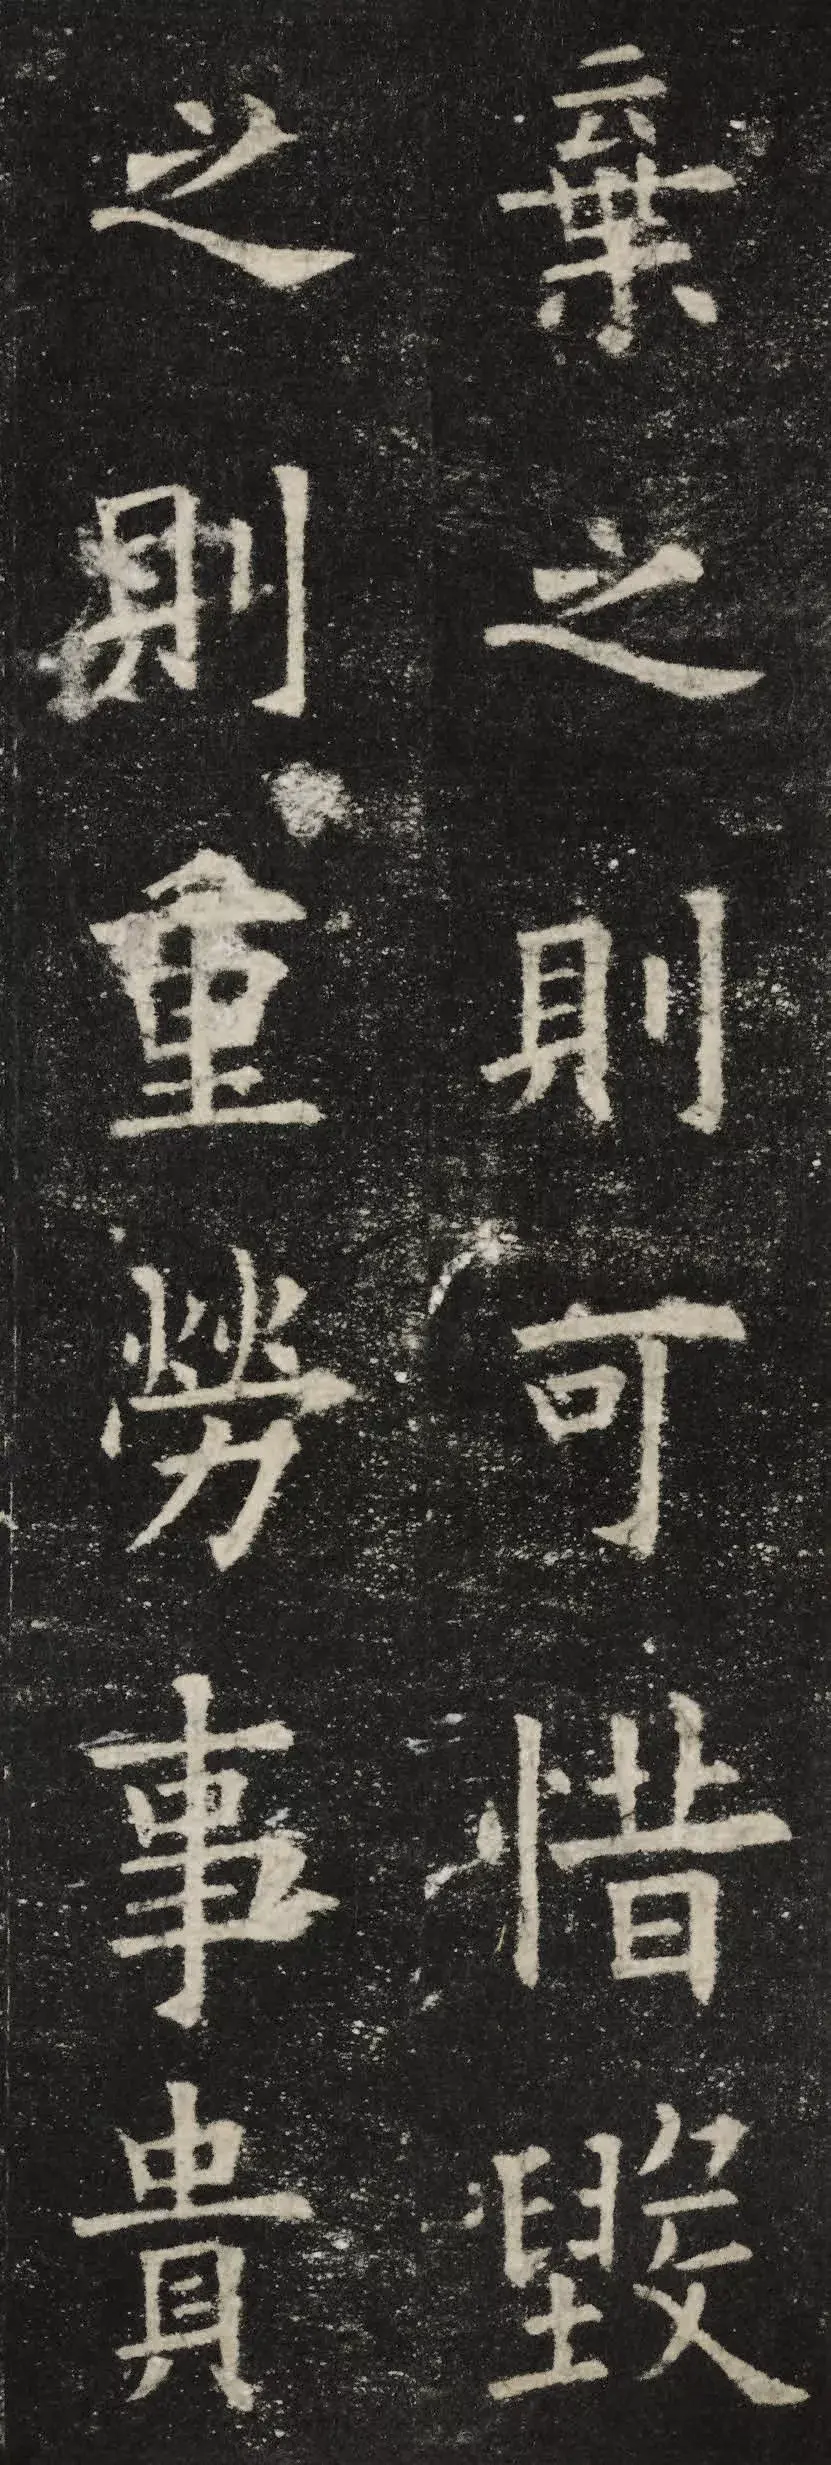 棄之則可惜毀
之則重勞事貴